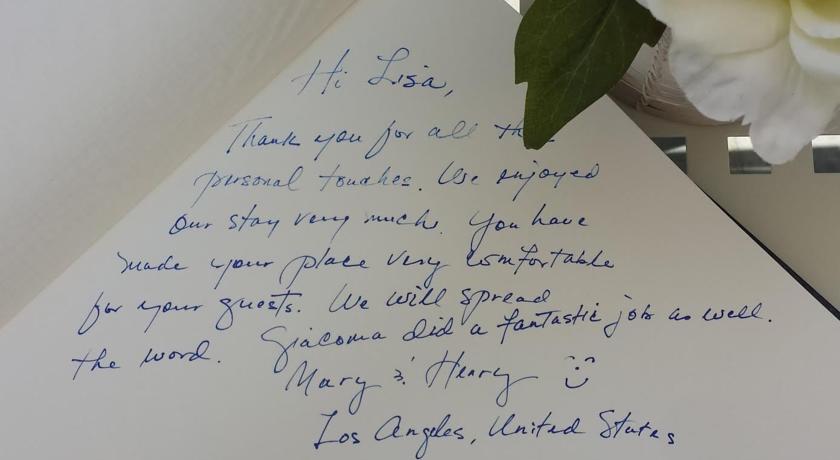 Hi Lisa,
Thank you for all
personal touches. We enjoyed
our stay very much. You have
made your place very comfortable
for your guests. We will spread
the word. Giacoma did a fantastic job as well.
Mary & Henry
Los Angeles, United States